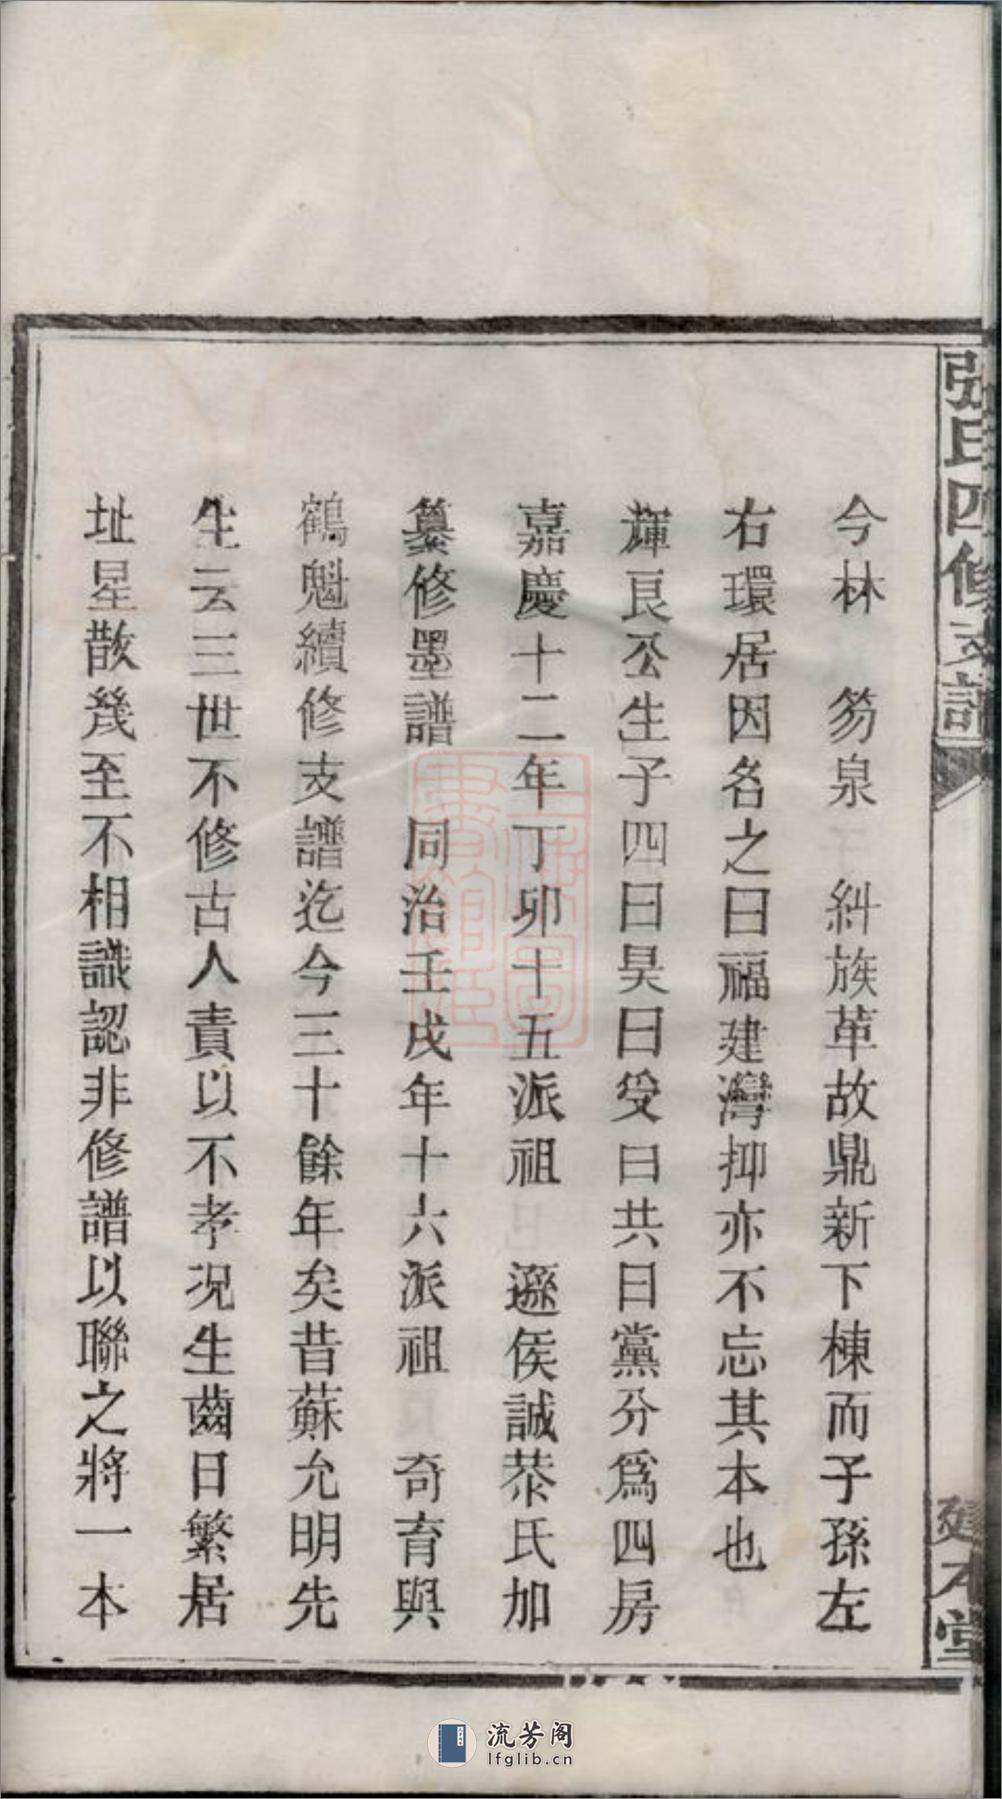 張氏四修支譜
建本堂
今林　笏泉　糾族革故鼎新下棟而子孫左
右環居因名之曰福建灣抑亦不忘其本也
輝良公生子四曰昊曰受曰共曰黨分爲四房
嘉慶十二年丁卯十五派祖　遜侯誠恭氏加
纂修墨譜　同治壬戌年十六派祖　奇育與
鶴魁續修支譜迄今三十餘年矣昔蘇允明先
生云三世不修古人責以不孝况生齒日繁居
址星散幾至不相識認非修譜以聯之將一本
流芳阁
lfglib.cn